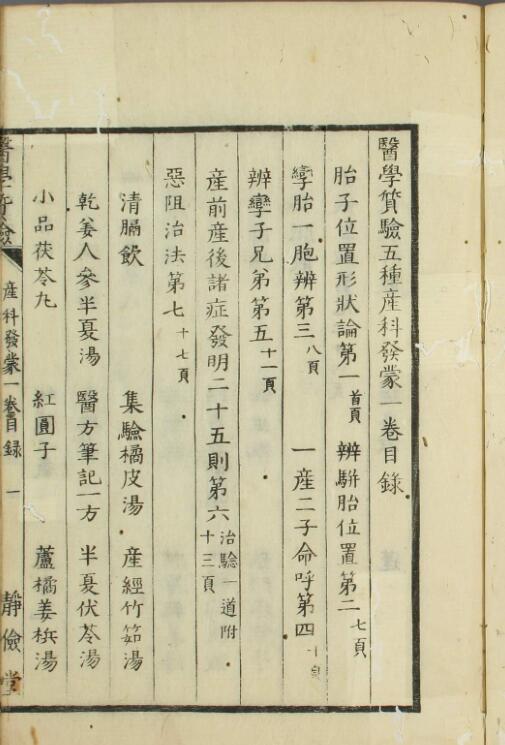 醫學質驗五種産科發蒙一卷目錄
胎子位置形狀論第一 首頁 辨駢胎位置第二 七頁
孿胎一胞辨第三 八頁 一産二子命呼第四
辨孿子兄弟第五 十一頁
産前産後諸症發明二十五則第六 治驗一道附 十三頁
惡阻治法第七 十七頁
清膈飲 集驗橘皮湯 産經竹筎湯
乾姜人參半夏湯 醫方筆記一方 半夏伏苓湯
小品茯苓丸 紅圓子 蘆橘姜梹湯
醫學質驗 産科發蒙一卷目録 一 靜儉堂